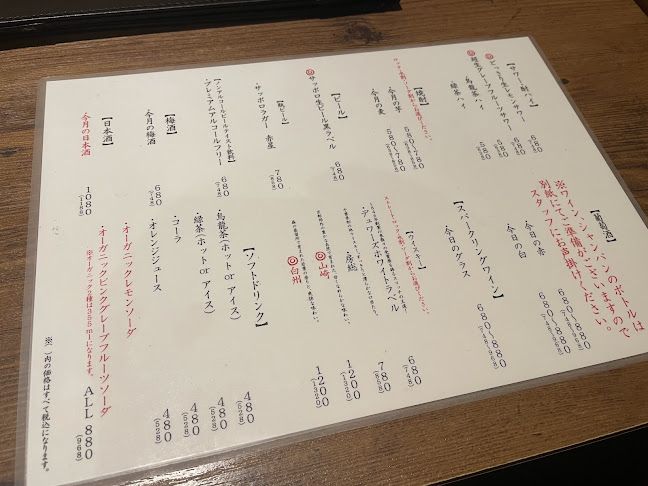 【サワー・酎ハイ】
・どっさり生レモンサワー 680(748)
・超生グレープフルーツサワー 680(748)
・烏龍茶ハイ 580
・緑茶ハイ 580
【焼酎】
・今月の芋 580(〜780(
・今月の麦 580(〜780(
【ビール】
サッポロ生ビール黒ラベル 680(748)
【瓶ビール】
・サッポロラガー 赤星 780
【ノンアルコールビールテイスト飲料】
・プレミアムアルコールフリー 680(748)
【梅酒】
・今月の梅酒 680(748)
【日本酒】
・今月の日本酒 1080(1188)
【葡萄酒】
※ワイン、シャンパンのボトルは
別紙にてご準備がございますので
スタッフにお声掛けください。
・今日の赤 680〜880(748〜968)
・今日の白 680〜880(748〜968)
【スパークリングワイン】
・今日のグラス 680〜880(748〜968)
【ウィスキー】
680(748)
・デュワーズホワイトラベル 780(858)
1200(1320)
山崎
1200(1320)
白州
【ソフトドリンク】
・烏龍茶(ホット or アイス) 480(528)
・緑茶(ホット or アイス) 480(528)
・コーラ 480(528)
・オレンジジュース 480(528)
・オーガニックレモンソーダ
・オーガニックピンクグレープフルーツソーダ ALL 880(968)
※オーガニック2種は355mlになります。
※( )内の価格はすべて税込になります。